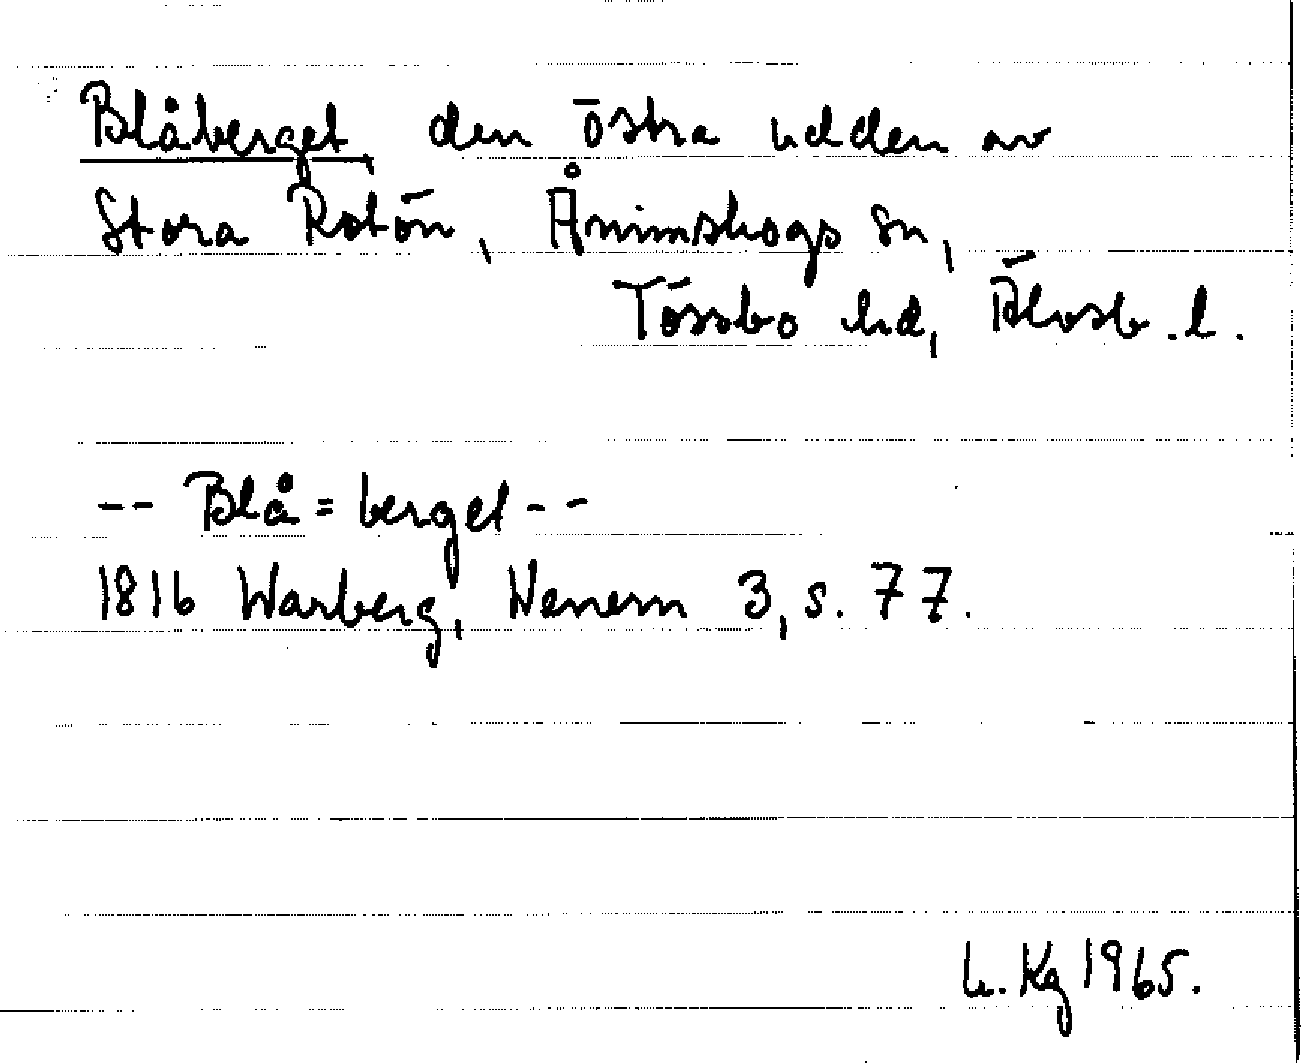 Blåberget, den östra udden av
Stora Rotön, Ånimskogs sn,
Tössbo hd, Älvsb. l.
-- Blå=berget --
1816 Warberg, Wenern 3, s. 77.
L. Kg 1965.